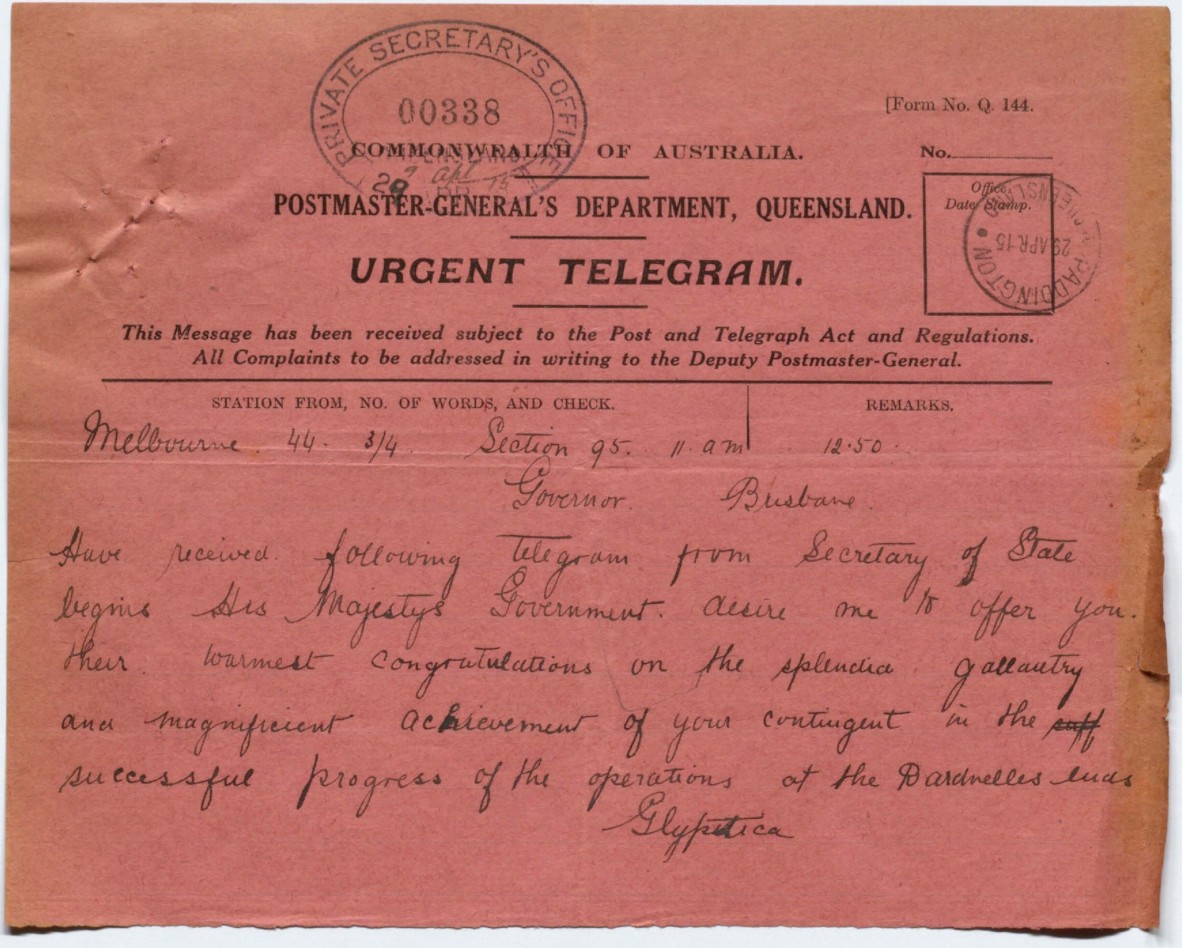 PRIVATE SECRETARY'S OFFICE
00338
QUEENSLAND
29 Apl 15
[Form No. Q. 144.
COMMONWEALTH OF AUSTRALIA.
No.
POSTMASTER-GENERAL'S DEPARTMENT, QUEENSLAND.
Office
Date Stamp.
PADDINGTON
29 APR 15
QUEENSLAND
URGENT TELEGRAM.
This Message has been received subject to the Post and Telegraph Act and Regulations.
All Complaints to be addressed in writing to the Deputy Postmaster-General.
STATION FROM, NO. OF WORDS, AND CHECK.
REMARKS.
Melbourne 44. 3/4. Section 95. 11. am 12.50.
Governor. Brisbane.
Have received following telegram from Secretary of State
begins His Majestys Government. desire me to offer you.
their warmest congratulations on the splendid gallantry
and magnificient achievement of your contingent in the suff
successful progress of the operations at the Dardnelles ends
Glyptica